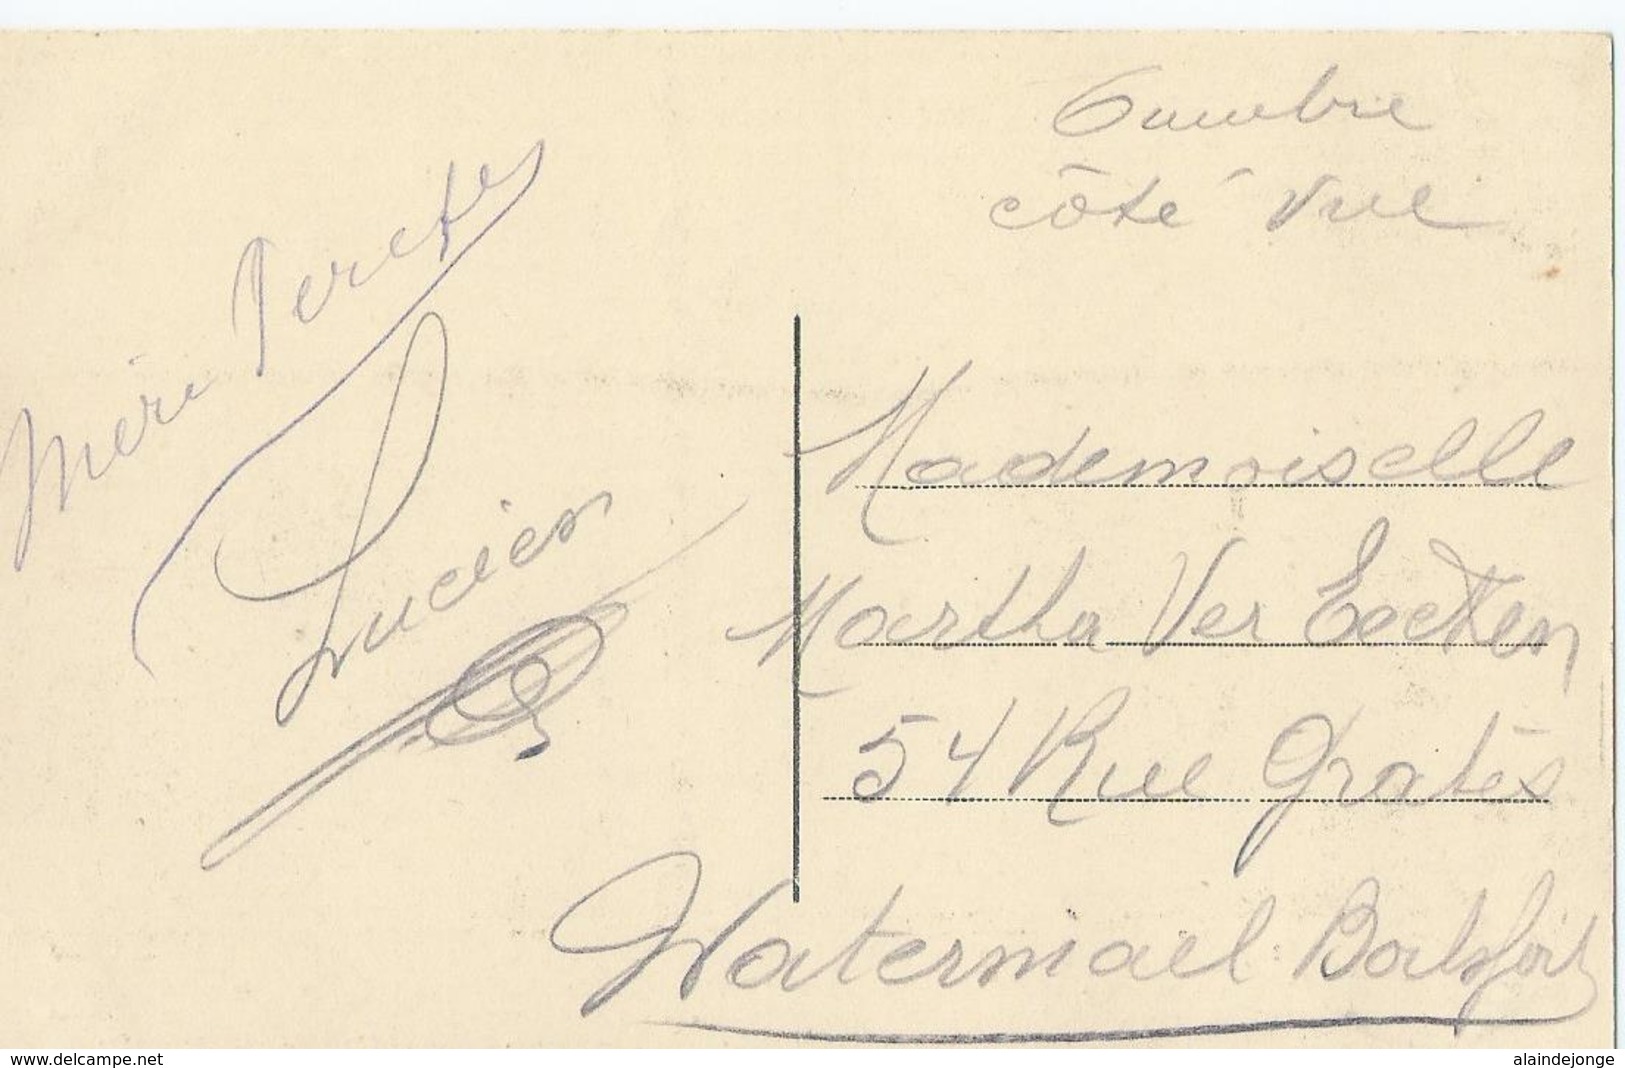 côté vue
Lucien
Mademoiselle
Martha Ver Eecken
54 Rue Gratès
Watermael Boitsfort
www.delcampe.net
alaindejonge